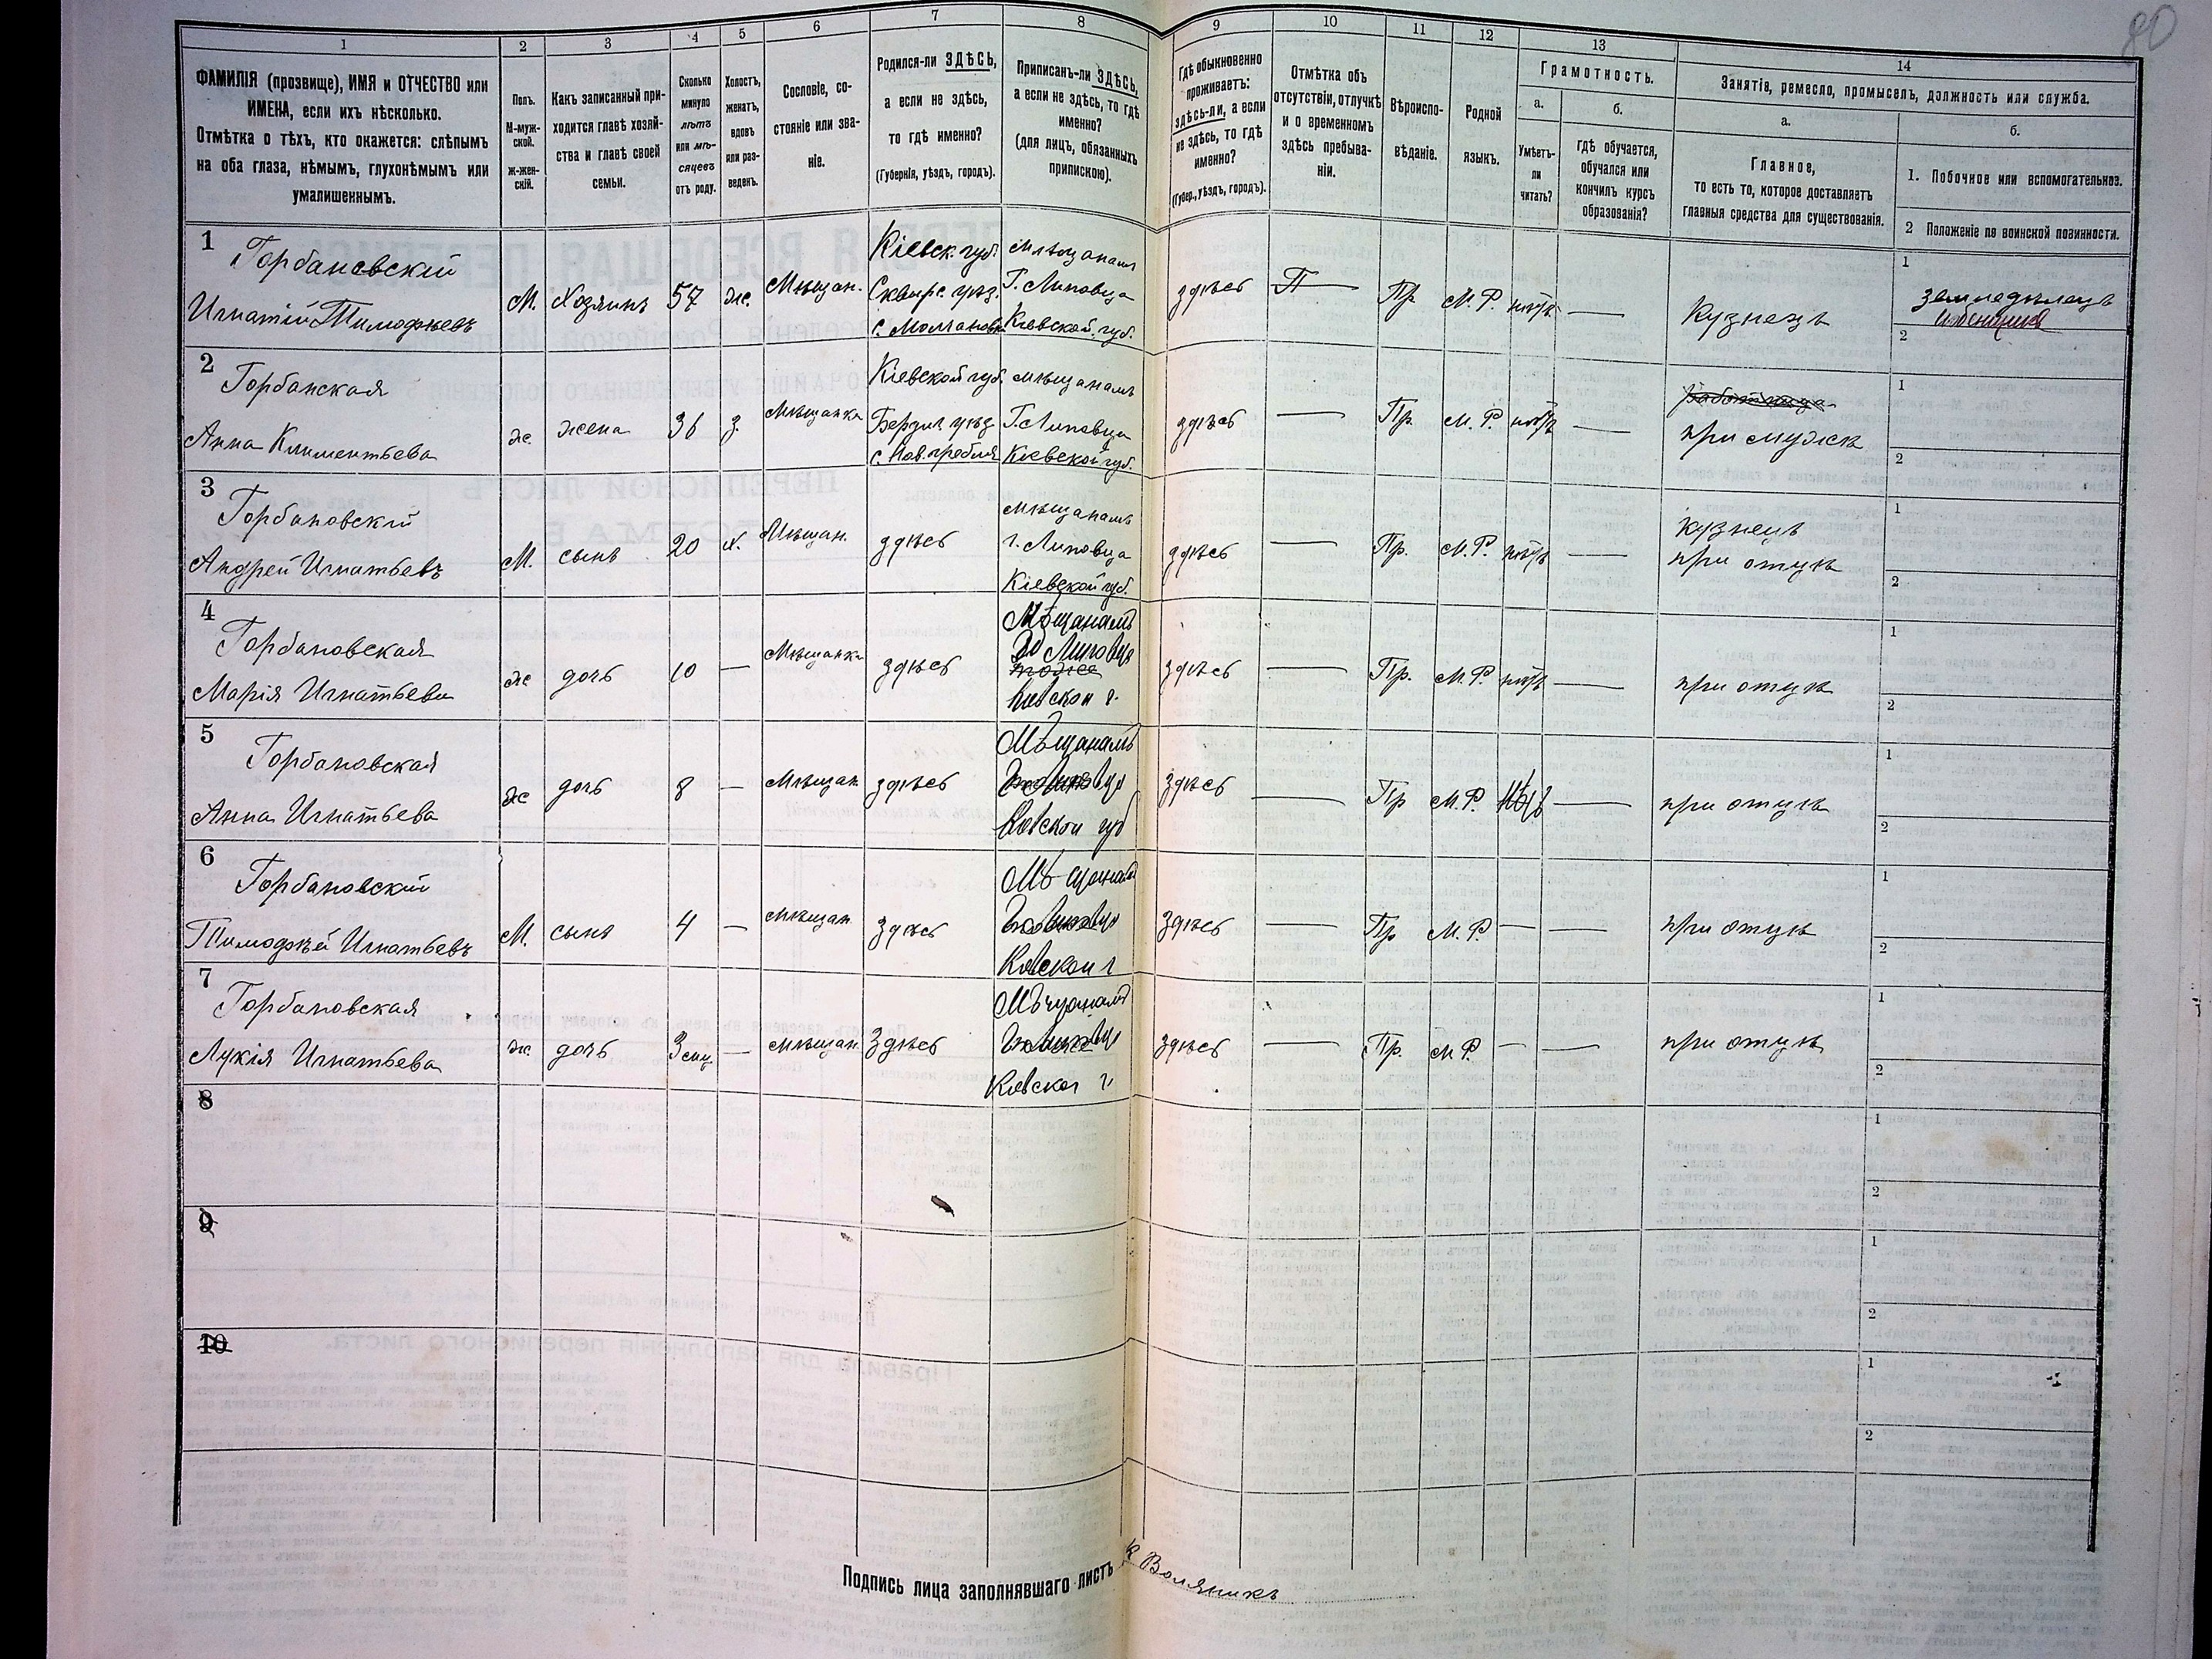 80
1
2
3
4
5
6
7
8
9
10
11
12
13
14
ФАМИЛІЯ (прозвище), ИМЯ и ОТЧЕСТВО или
ИМЕНА, если ихъ нѣсколько.
Отмѣтка о тѣхъ, кто окажется: слѣпымъ
на оба глаза, нѣмымъ, глухонѣмымъ или
умалишеннымъ.
Полъ.
М-муж-
ской.
ж-жен-
скій.
Какъ записанный при-
ходится главѣ хозяй-
ства и главѣ своей
семьи.
Сколько
минуло
лѣтъ
или мѣ-
сяцевъ
отъ роду.
Холостъ,
женатъ,
вдовъ
или раз-
веденъ.
Сословіе, со-
стояніе или зва-
ніе.
Родился-ли ЗДѢСЬ,
а если не здѣсь,
то гдѣ именно?
(Губернія, уѣздъ, городъ).
Приписанъ-ли ЗДѢСЬ,
а если не здѣсь, то гдѣ
именно?
(для лицъ, обязанныхъ
припискою).
Гдѣ обыкновенно
проживаетъ:
здѣсь-ли, а если
не здѣсь, то гдѣ
именно?
(Губер., уѣздъ, городъ).
Отмѣтка объ
отсутствіи, отлучкѣ
и о временномъ
здѣсь пребыва-
ніи.
Вѣроиспо-
вѣданіе.
Родной
языкъ.
Грамотность.
а.
Умѣетъ-
ли
читать?
б.
гдѣ обучается,
обучался или
кончилъ курсъ
образованія?
Занятіе, ремесло, промыселъ, должность или служба.
а.
Главное,
то есть то, которое доставляетъ
главныя средства для существованія.
б.
1. Побочное или вспомогательное.
2 Положеніе по воинской повинности.
1
Горбановскій
Игнатій Тимофѣевъ
М.
Хозяинъ
57
ж.
Мѣщан.
Кіевск. губ.
Сквирс. уѣз.
мѣщанамъ
Г. Липовца
Кіевской губ.
здѣсь
Пр.
М. Р.
нѣтъ
Кузнецъ
1
земледѣлецъ
2
2
Горбанская
Анна Климентьева
ж.
жена
36
з.
Мѣщанка
Кіевской губ.
Бердич. уѣз.
с. Нов. гребля
мѣщанамъ
Г. Липовца
Кіевской губ.
здѣсь
Пр.
М. Р.
нѣтъ
при мужѣ
1
2
3
Горбановскій
Андрей Игнатьевъ
М.
сынъ
20
х.
Мѣщан.
здѣсь
мѣщанамъ
г. Липовца
Кіевской губ.
здѣсь
Пр.
М. Р.
нѣтъ
Кузнецъ
при отцѣ
1
2
4
Горбановская
Марія Игнатьева
ж
дочь
10
Мѣщанка
здѣсь
Мѣщанамъ
Липовца
Кіевской г.
здѣсь
Пр.
М. Р.
нѣтъ
при отцѣ
1
2
5
Горбановская
Анна Игнатьева
ж
дочь
8
мѣщан.
здѣсь
Мѣщанамъ
Кіевской губ
здѣсь
Пр
М. Р.
нѣтъ
при отцѣ
1
2
6
Горбановскій
Тимофѣй Игнатьевъ
М.
сынъ
4
мѣщан.
здѣсь
Мѣщанамъ
Кіевской г
здѣсь
Пр
М. Р.
при отцѣ
1
2
7
Горбановская
Лукія Игнатьева
ж.
дочь
мѣщан.
Здѣсь
Мѣщанамъ
Кіевской г.
здѣсь
Пр.
М Р.
при отцѣ
1
2
8
1
2
9
1
2
10
1
2
Подпись лица заполнявшаго листъ